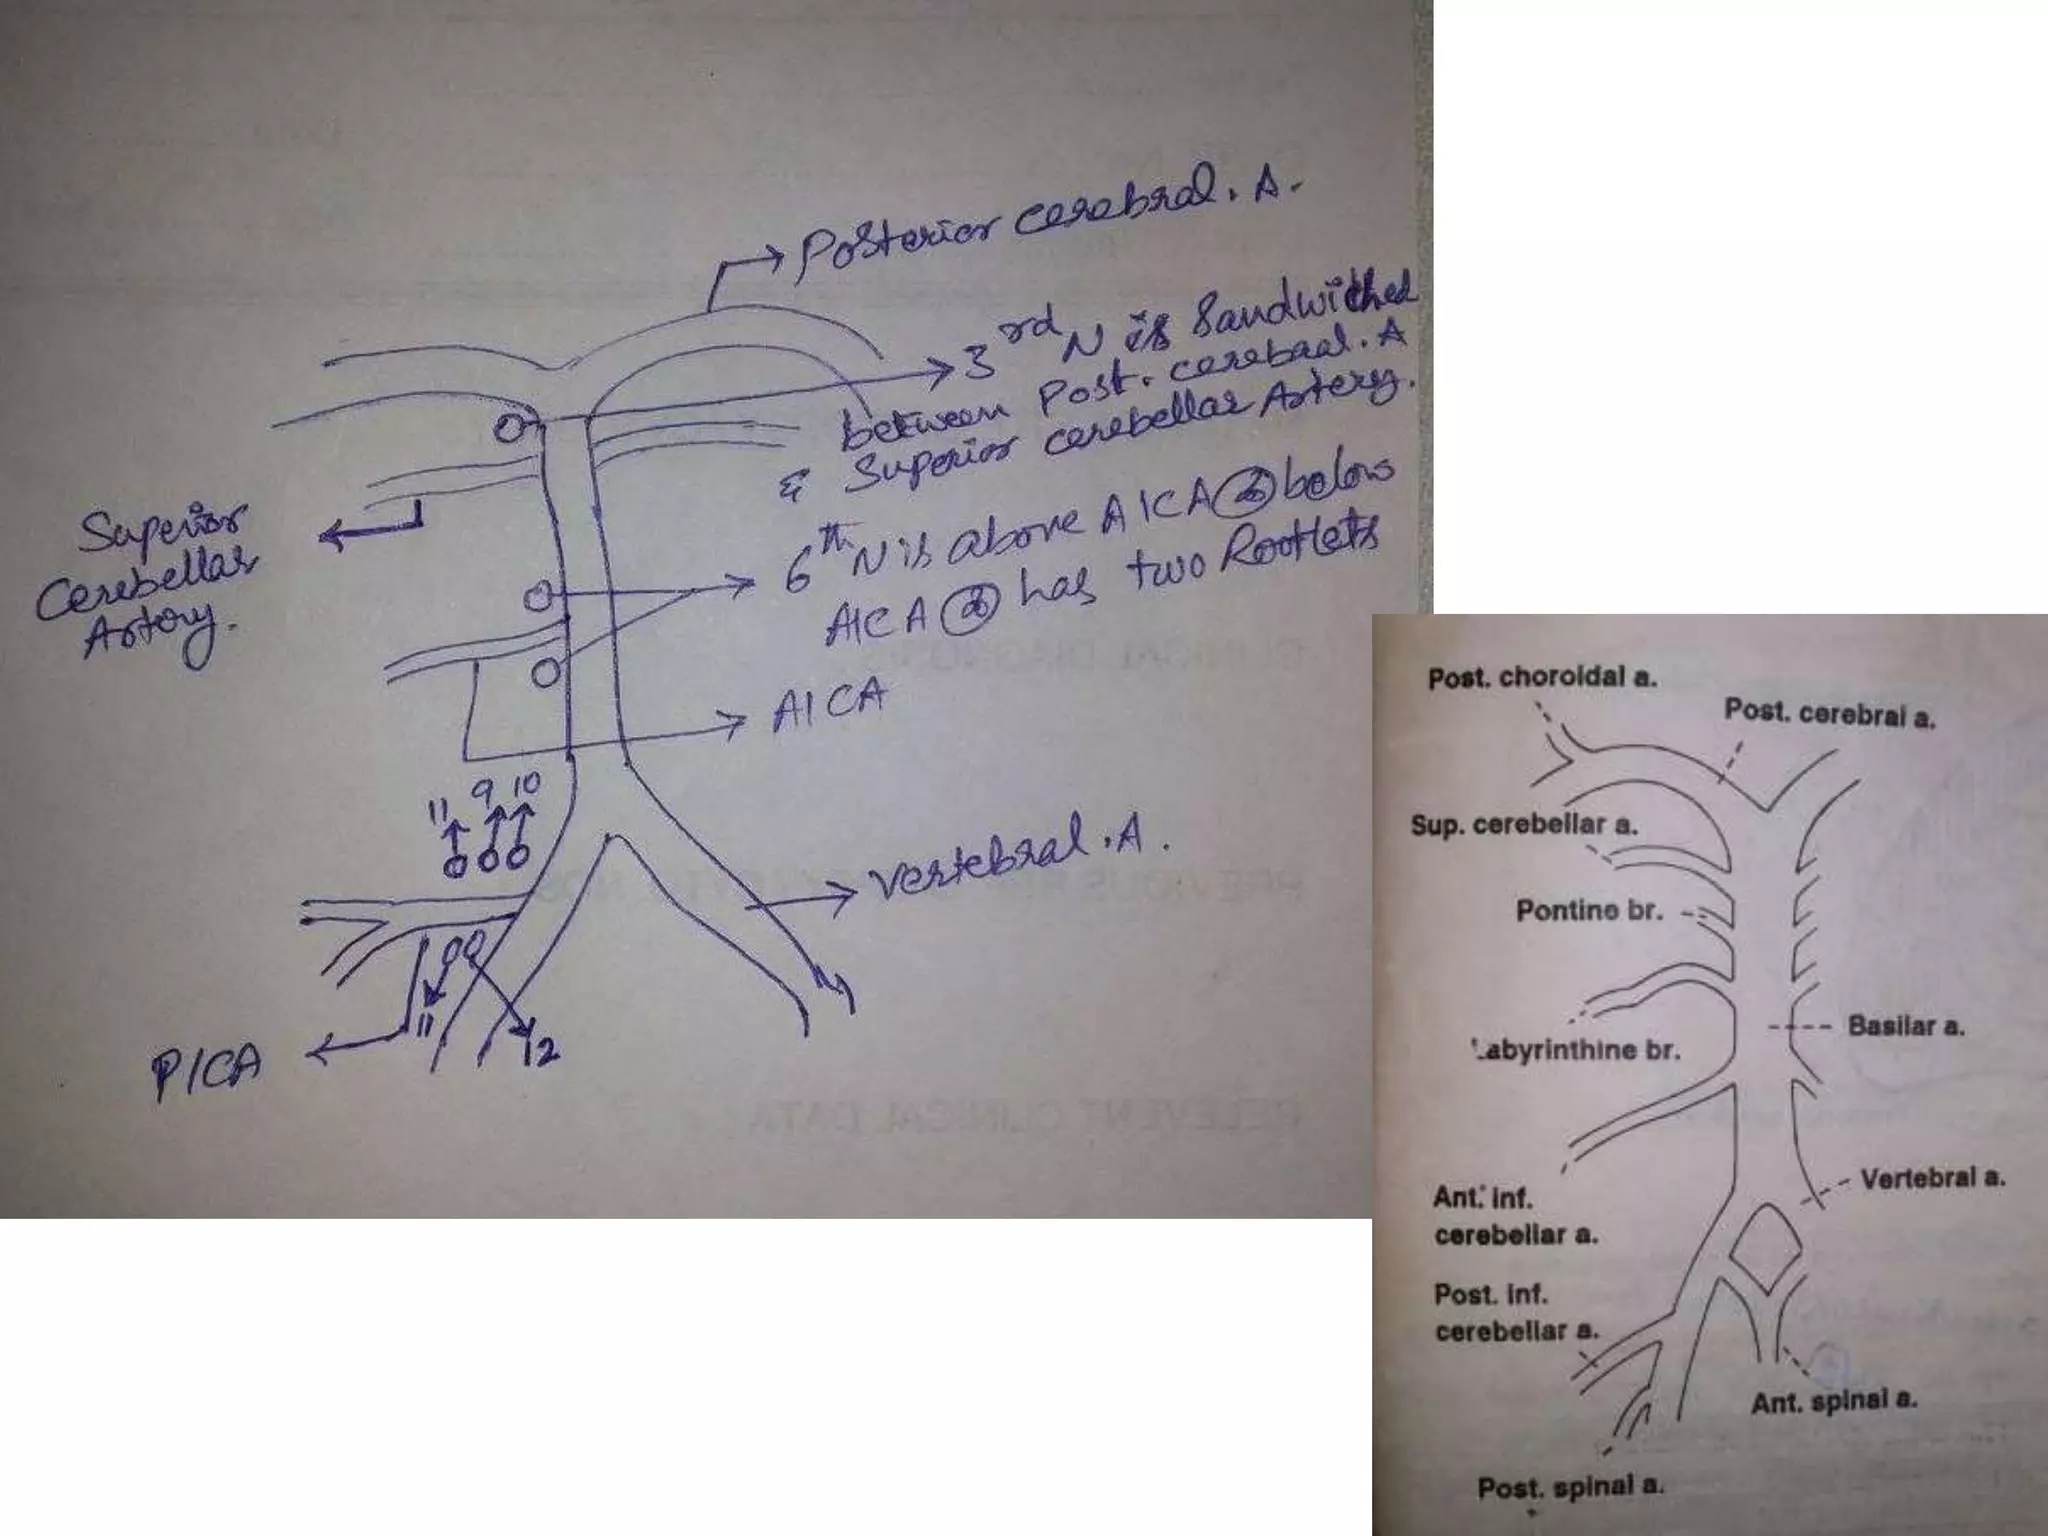 Posterior cerebral. A.
3rd N is Sandwiched
between Post. cerebral. A
& Superior cerebellar Artery.
Superior
Cerebellar
Artery.
6th N is above AICA or below
AICA or has two Rootlets
AICA
11 9 10
vertebral. A.
11
12
PICA
Post. choroidal a.
Post. cerebral a.
Sup. cerebellar a.
Pontine br.
Basilar a.
Labyrinthine br.
Vertebral a.
Ant. inf.
cerebellar a.
Post. inf.
cerebellar a.
Ant. spinal a.
Post. spinal a.